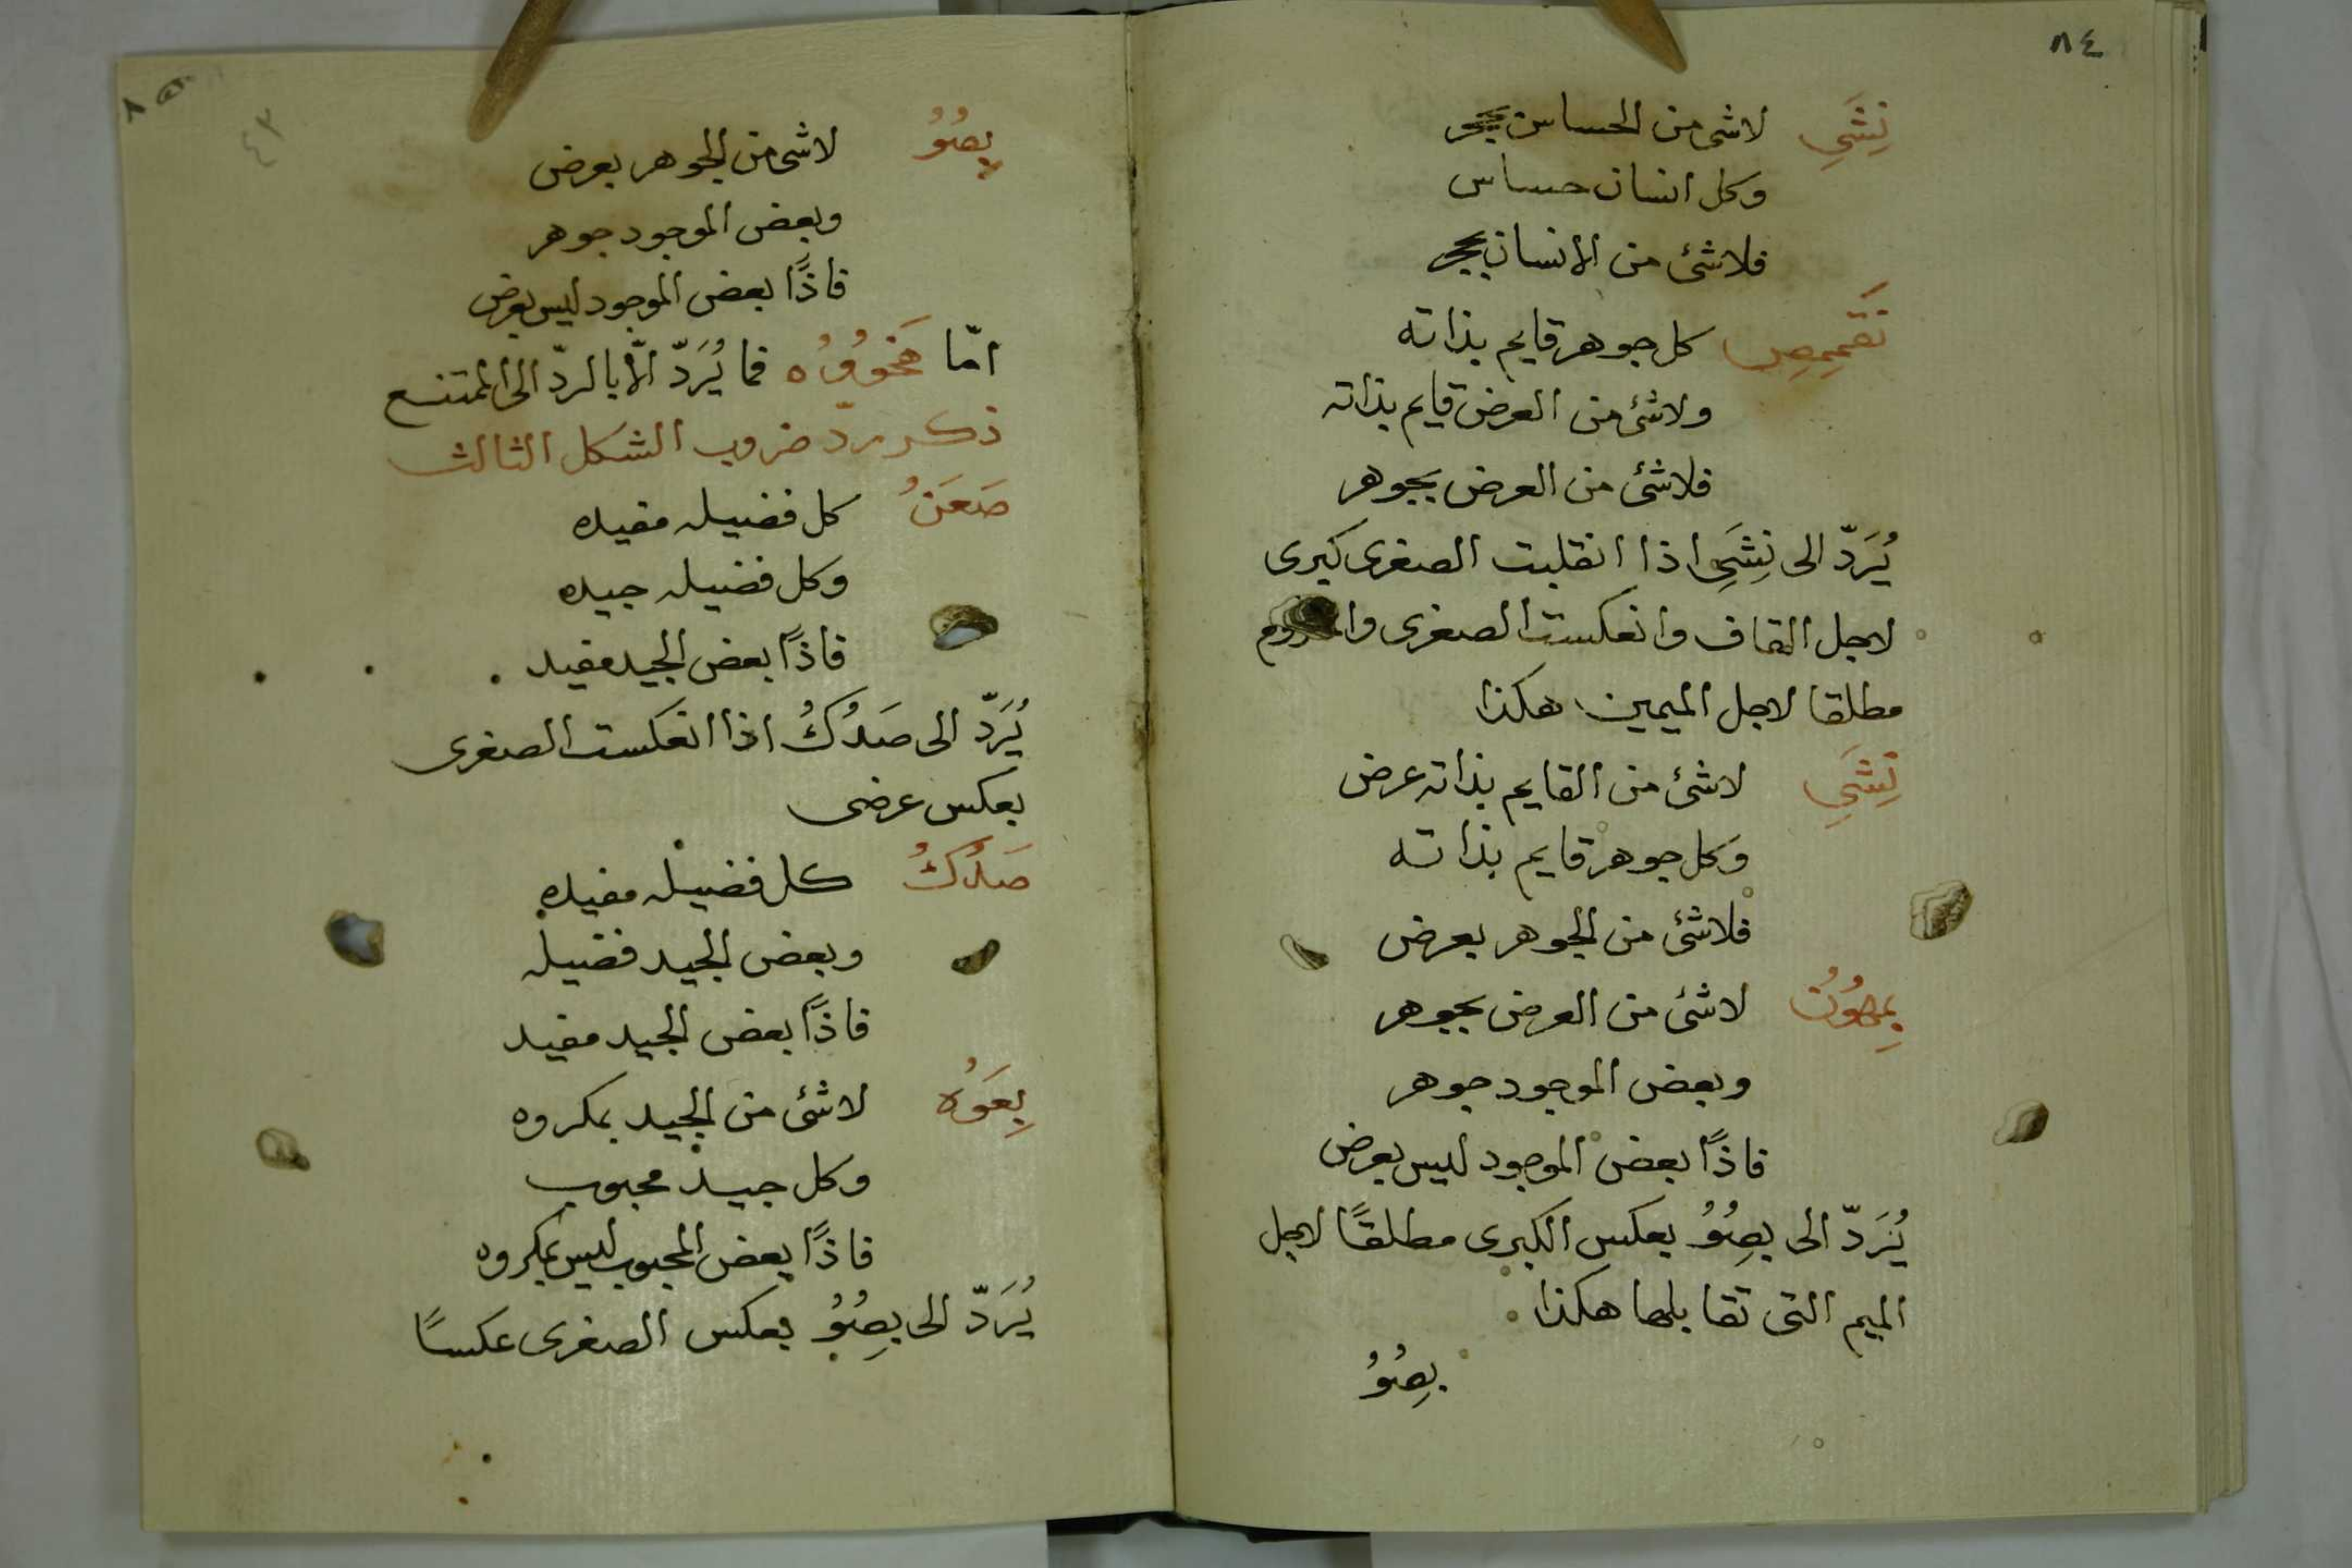 ٨٤
نِشَيِ لاشى من الحساس بحجر
وكل انسان حساس
فلاشئ من الانسان بحجر
كل جوهر قايم بذاته
ولاشئ من العرض قايم بذاته
فلاشئ من العرض بجوهر
يُرَدّ الى نِشَيِ اذا انقلبت الصغرى كبرى
لاجل القاف وانعكست الصغرى
مطلقا لاجل الميمين هكذا
نِشَيِ لاشئ من القايم بذاته عرض
وكل جوهر قايم بذاته
فلاشئ من الجوهر بعرض
لاشئ من العرض بجوهر
وبعض الموجود جوهر
فاذًا بعض الموجود ليس بعرض
يُرَدّ الى بِصُوُ بعكس الكبرى مطلقًا لاجل
الميم التى تقابلها هكذا
بِصُوُ
٨٥
٤٣
بِصُوُ لاشى من الجوهر بعرض
وبعض الموجود جوهر
فاذًا بعض الموجود ليس بعرض
امّا فما يُرَدّ الّا بالردّ الى الممتنع
ذكر ردّ ضروب الشكل الثالث
صَعَنُ كل فضيله مفيده
وكل فضيله جيده
فاذًا بعض الجيد مفيد
يُرَدّ الى صَدُكُ اذا انعكست الصغرى
بعكس عرضى
صَدُكُ كل فضيله مفيده
وبعض الجيد فضيله
فاذًا بعض الجيد مفيد
بِعَوُه لاشئ من الجيد بمكروه
وكل جيد محبوب
فاذًا بعض المحبوب ليس بمكروه
يُرَدّ الى بِصُوُ بعكس الصغرى عكسًا